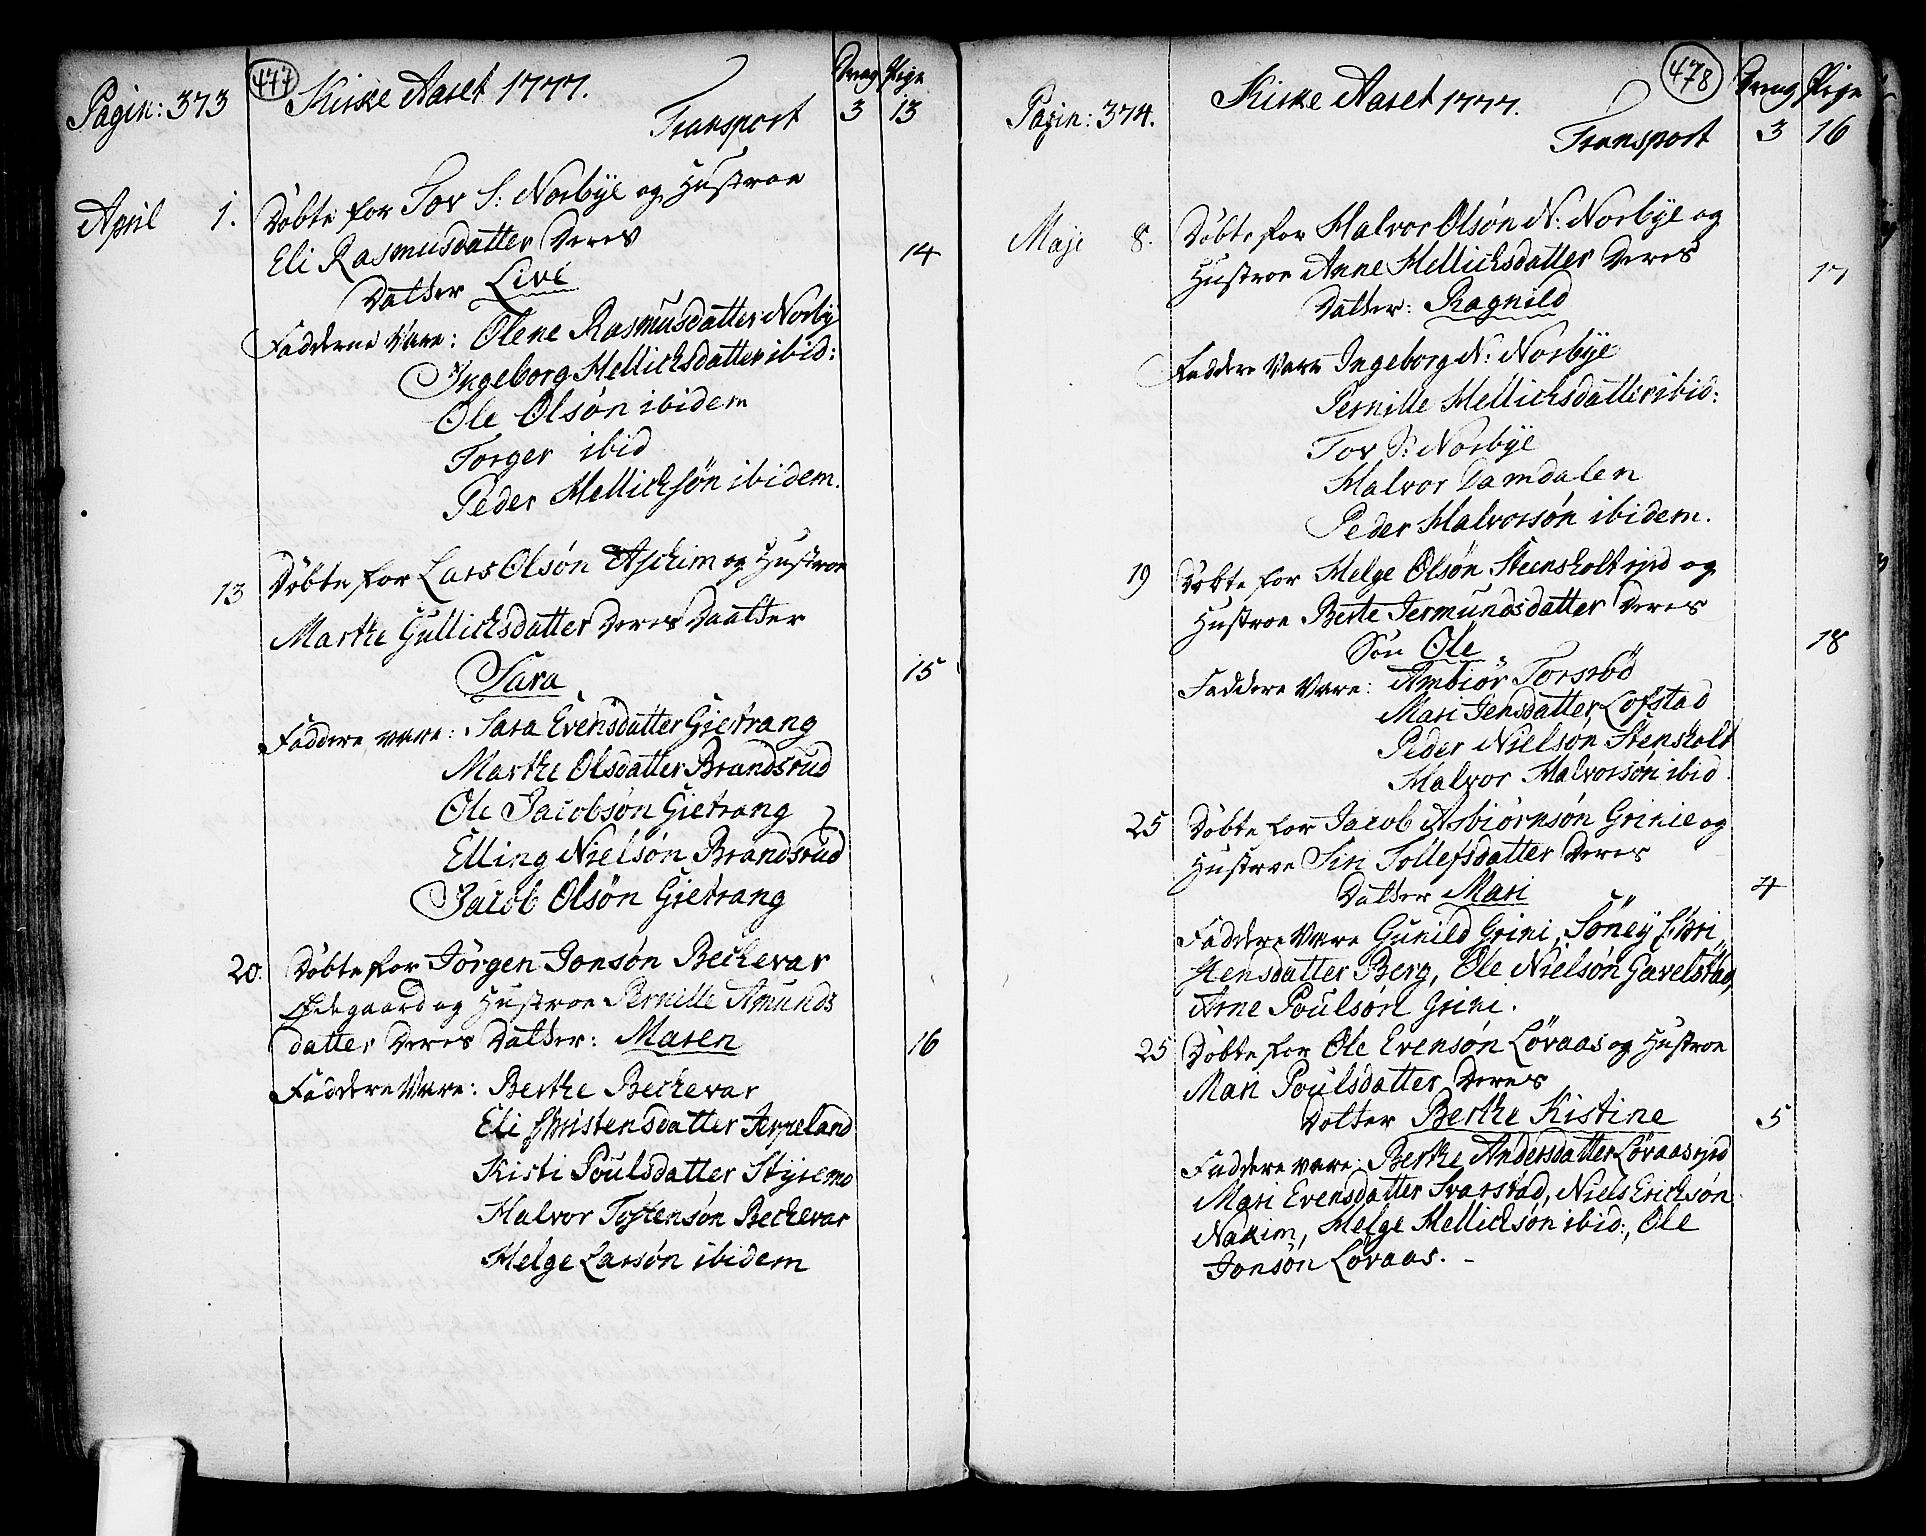 Pagin: 373
477
Kirke Aaret 1777.
Dreng Pige
Transport 3 13
April 1. Døbte for Tov S: Norbÿe og Hustroe
Eli Rasmusdatter Deres
Datter Live 14
Fadderne Vare: Olene Rasmusdatter Norbÿ
Ingeborg Mellichsdatter ibid:
Ole Olsøn ibidem
Torger ibid
Peder Mellichsøn ibidem.
13 Døbte for Lars Olsøn Aschim og Hustroe
Marthe Gullichsdatter Deres Daatter
Sara 15
Faddere vare: Sara Evensdatter Gietrang
Marthe Olsdatter Brandsrud
Ole Jacobsøn Gietrang
Elling Nielsøn Brandsrud
Jacob Olsøn Gietrang
20. Døbte for Jörgen Jonsøn Bechevar
Ødegaard og Hustroe Pernille Amunds
datter Deres Datter: Maren 16
Faddere Vare: Berthe Bechevar
Eli Christensdatter Jerpeland
Kisti Poulsdatter Stÿremo
Halvor Tostensøn Bechevar
Helge Larsøn ibidem
478
Pagin: 374.
Kirke Aaret 1777.
Dreng Pige
Transport 3 16
Maji 8. Døbte for Halvor Olsøn N: Norbÿe og
Hustroe Anne Mellichsdatter Deres
Datter: Ragnild 17
Faddere Vare Ingeborg N: Norbÿe
Pernille Mellichsdatter ibid:
Tov S: Norbÿe
Halvor Damdalen
Peder Halvorsøn ibidem.
19 Døbte for Helge Olsøn Steensholt ejed og
Hustroe Berte Jermundsdatter Deres
Søn Ole 18
Faddere Vare: Ambiør Torsrød
Mari Jensdatter Lofstad
Peder Nielsøn Stensholt
Halvor Halvorsøn ibid.
25 Døbte for Jacob Asbiørnsøn Grinie og
Hustroe Siri Tollefsdatter Deres
Datter Mari 4
Faddere Vare Gunild Grini, Søney
Jensdatter Berg, Ole Nielsøn Gavelstad,
Arne Poulsøn Grini.
25 Døbte for Ole Evensøn Løvaas og Hustroe
Mari Poulsdatter Deres
Dotter Berthe Kistine 5
Faddere vare: Berthe Andersdatter Løvaasejed
Mari Evensdatter Svarstad, Niels Erichsøn
Nakim, Helge Mellichsøn ibid:, Ole
Jonsøn Løvaas. -